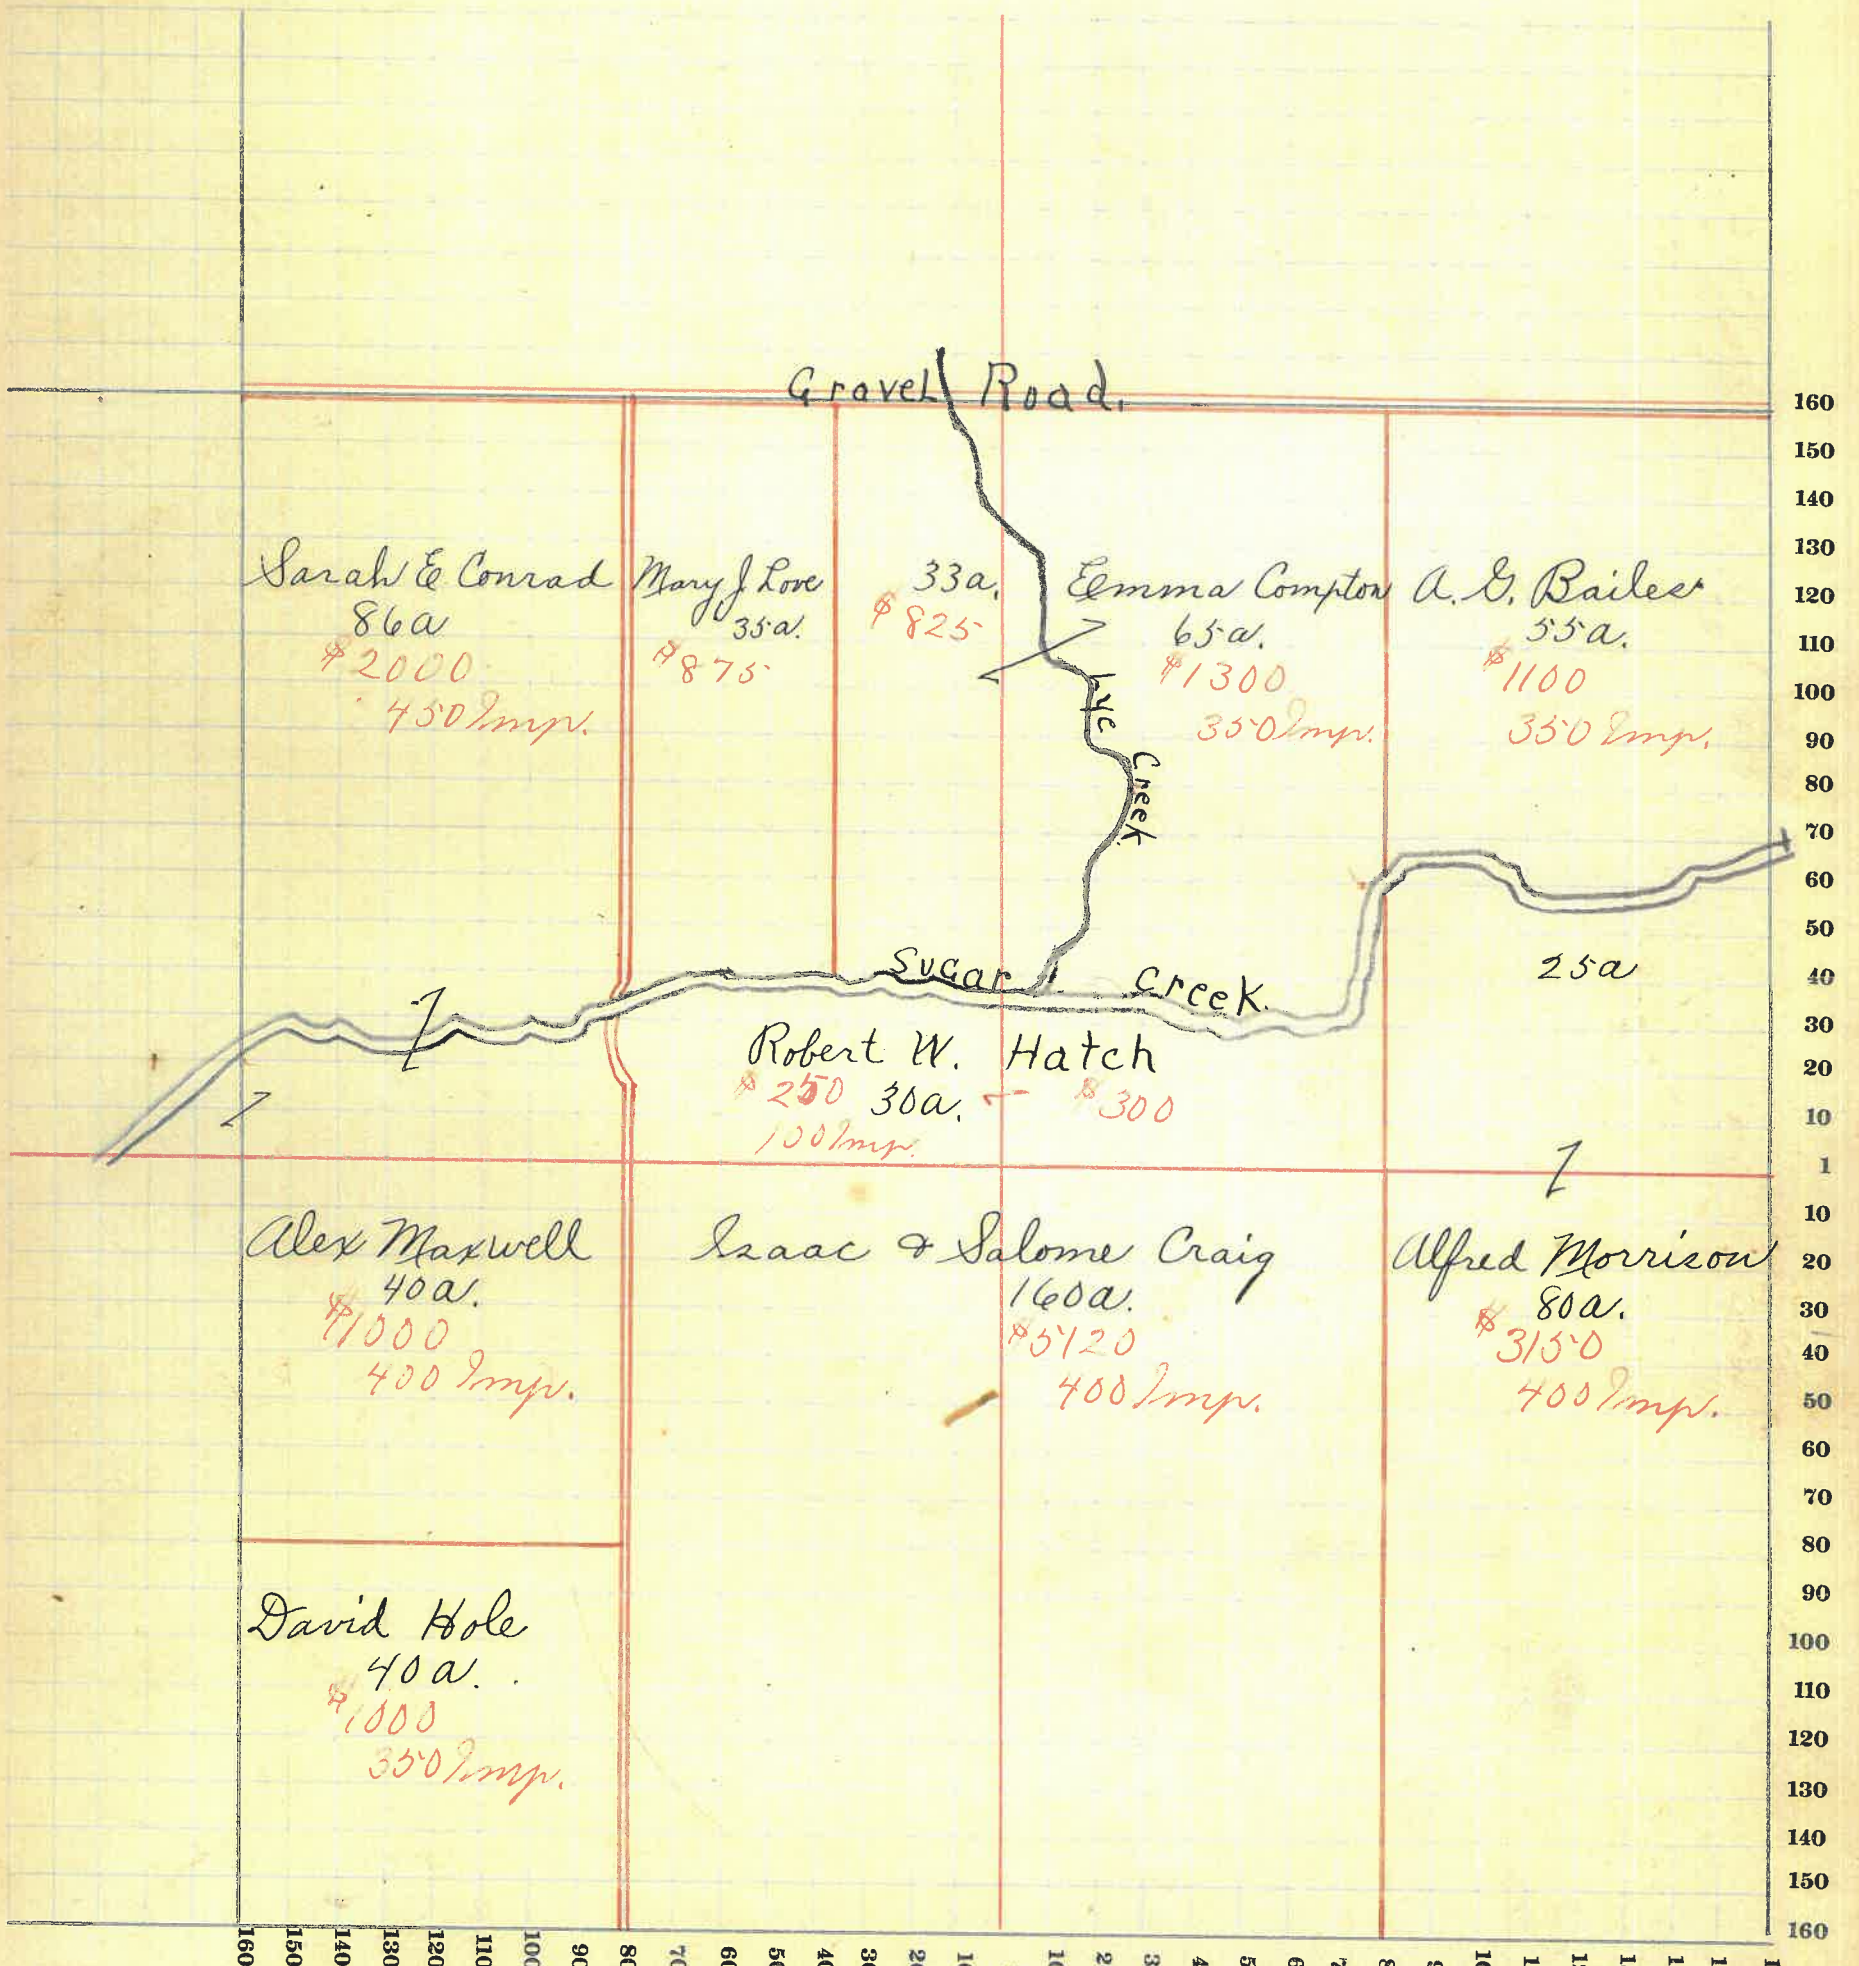 Gravel Road.
Sarah E Conrad
86a
$2000
450 Imp.
Mary J Love
35a.
$875
33a.
$825
Emma Compton
65a.
$1300
350 Imp.
A. G. Bailes
55a.
$1100
350 Imp.
Lye Creek
Sugar Creek.
25a
Robert W. Hatch
$250 30a. $300
100 Imp.
Alex Maxwell
40a.
$1000
400 Imp.
Isaac & Salome Craig
160a.
$5120
400 Imp.
Alfred Morrison
80a.
$3150
400 Imp.
David Hole
40a.
$1000
350 Imp.
160
150
140
130
120
110
100
90
80
70
60
50
40
30
20
10
1
10
20
30
40
50
60
70
80
90
100
110
120
130
140
150
160
160 150 140 130 120 110 100 90 80 70 60 50 40 30 20 10